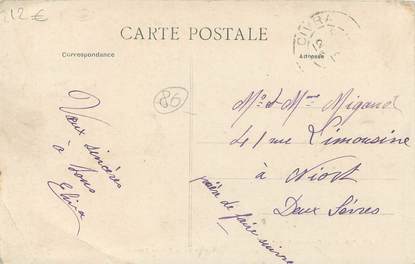 12€
CARTE POSTALE
Correspondance
Adresse
CIVRA
86
Vœux sincères
à tous
Mr et Mme Migaud
rue Limousine
à Niort
Deux Sèvres
prière de faire suivre